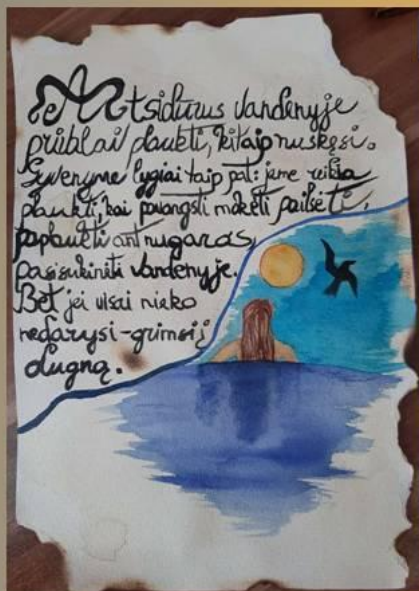 Atsidūrus Vandenyje
privalai plaukti, kitaip nuskęsi.
Gyvenyme lygiai taip pat: jame reikia
plaukti, kai pavargsti mokėti pailsėti,
paplaukti ant nugaros,
pasisukinėti vandenyje.
Bet jei visai nieko
nedarysi - grimsi į
dugną.